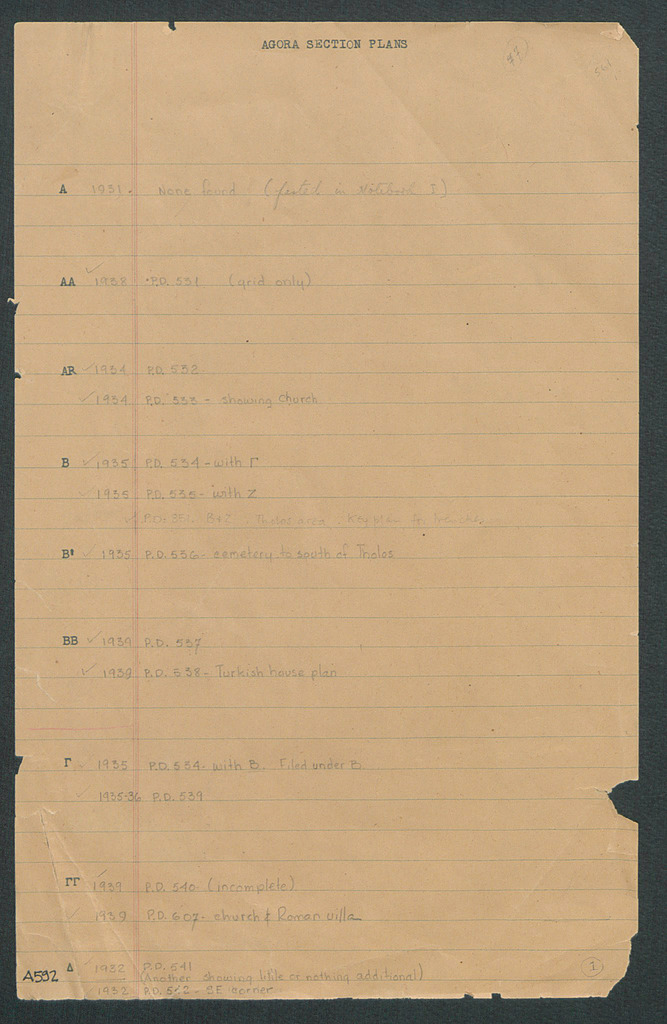 AGORA SECTION PLANS
77
561
A 1931. None found (        in Notebook I)
AA ✓ 1938 P.D. 531 (grid only)
AR ✓ 1934 P.D. 532
✓ 1934 P.D. 533 - showing Church
B ✓ 1935 P.D. 534 - with Γ
✓ 1935 P.D. 535 - with Z
✓ P.D. 351. B+Z. Tholos area. Key plan for trenches.
B' ✓ 1935 P.D. 536 - cemetery to south of Tholos
BB ✓ 1939 P.D. 537
✓ 1939 P.D. 538 - Turkish house plan
Γ ✓ 1935 P.D. 534 - with B. Filed under B
✓ 1935-36 P.D. 539
ΓΓ ✓ 1939 P.D. 540 - (incomplete)
✓ 1939 P.D. 607 - church & Roman villa
Δ ✓ 1932 P.D. 541
(Another showing little or nothing additional)
✓ 1932 P.D. 542 - SE corner
A592
1